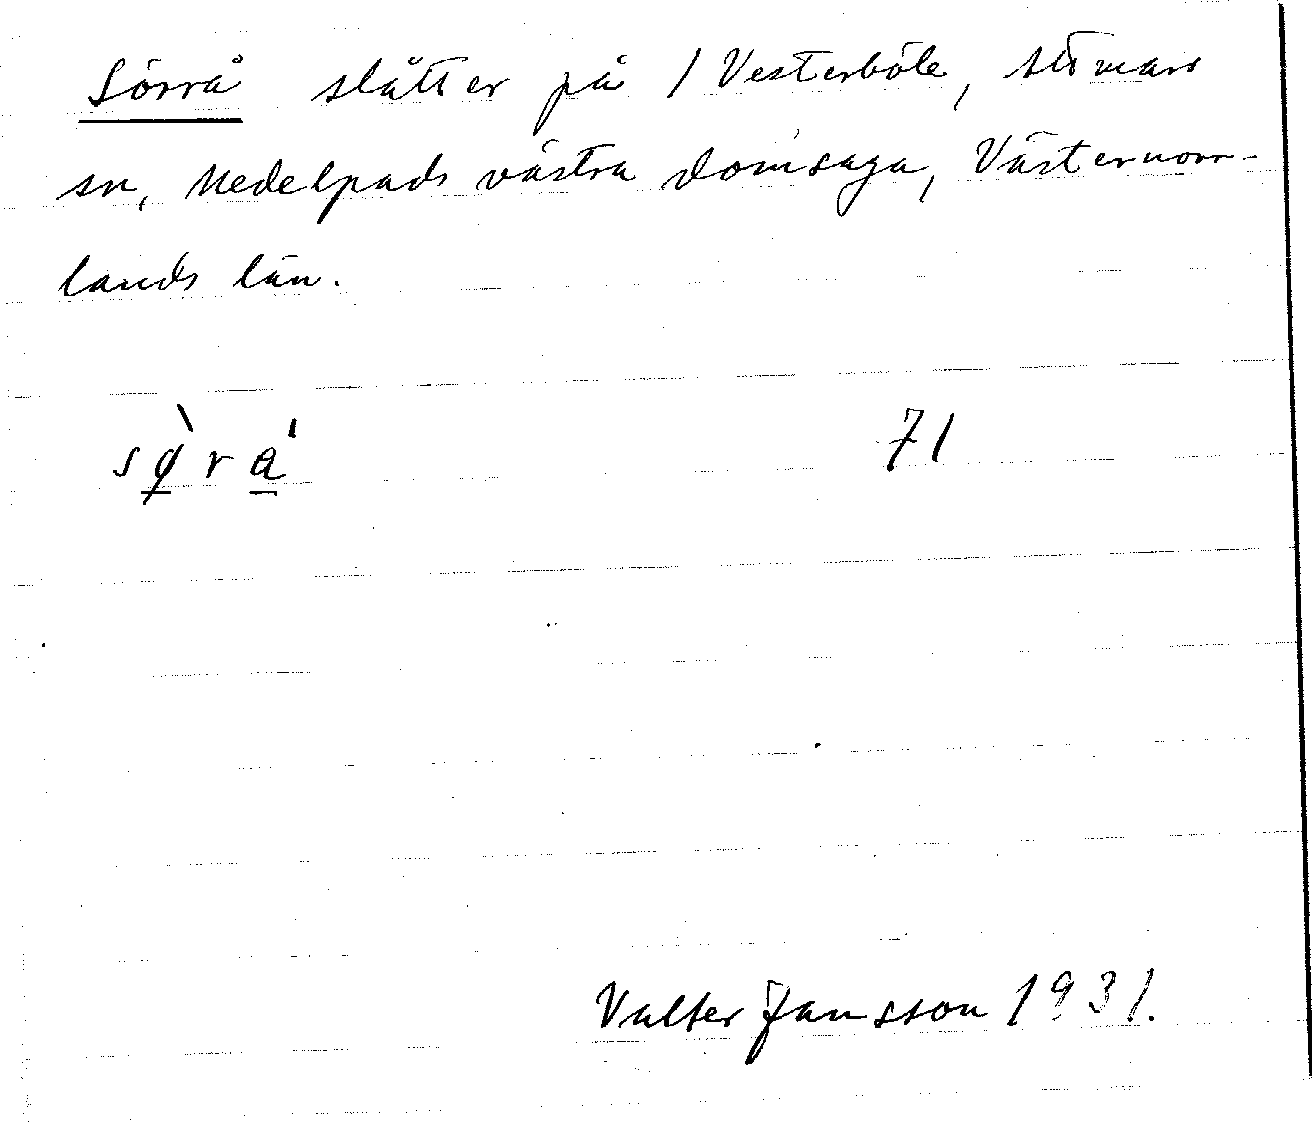 Sörrå slåtter på / Vesterböle, Stömars
sn, Medelpads västra domsaga, Västernorr-
lands län.
sø̠̀ra̠ˈ 71
Valter Jansson 1931.